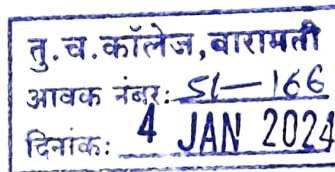 तु.च.कॉलेज, बारामती
आवक नंबर: S1—166
दिनांक: 4 JAN 2024